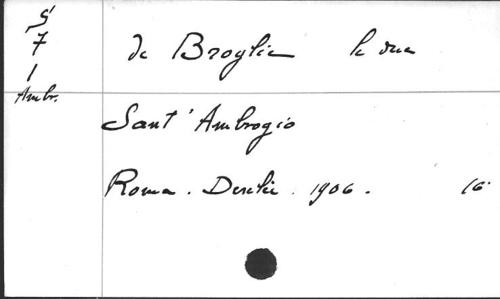 S
7
1
Ambr.
de Broglie le duc
Sant' Ambrogio
Roma. Desclée. 1906. 16°